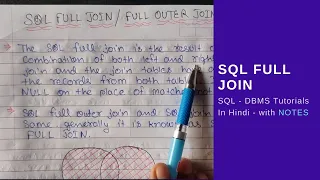 SQL FULL JOIN / FULL OUTER JOIN
The SQL full join is the result o
combination of both left and righ
join and the join tables have
the records from both tab
NULL on the place of match
SQL full outer join and SQL join
Same generally it is known as
FULL JOIN.
SQL FULL
JOIN
SQL - DBMS Tutorials
In Hindi - with NOTES